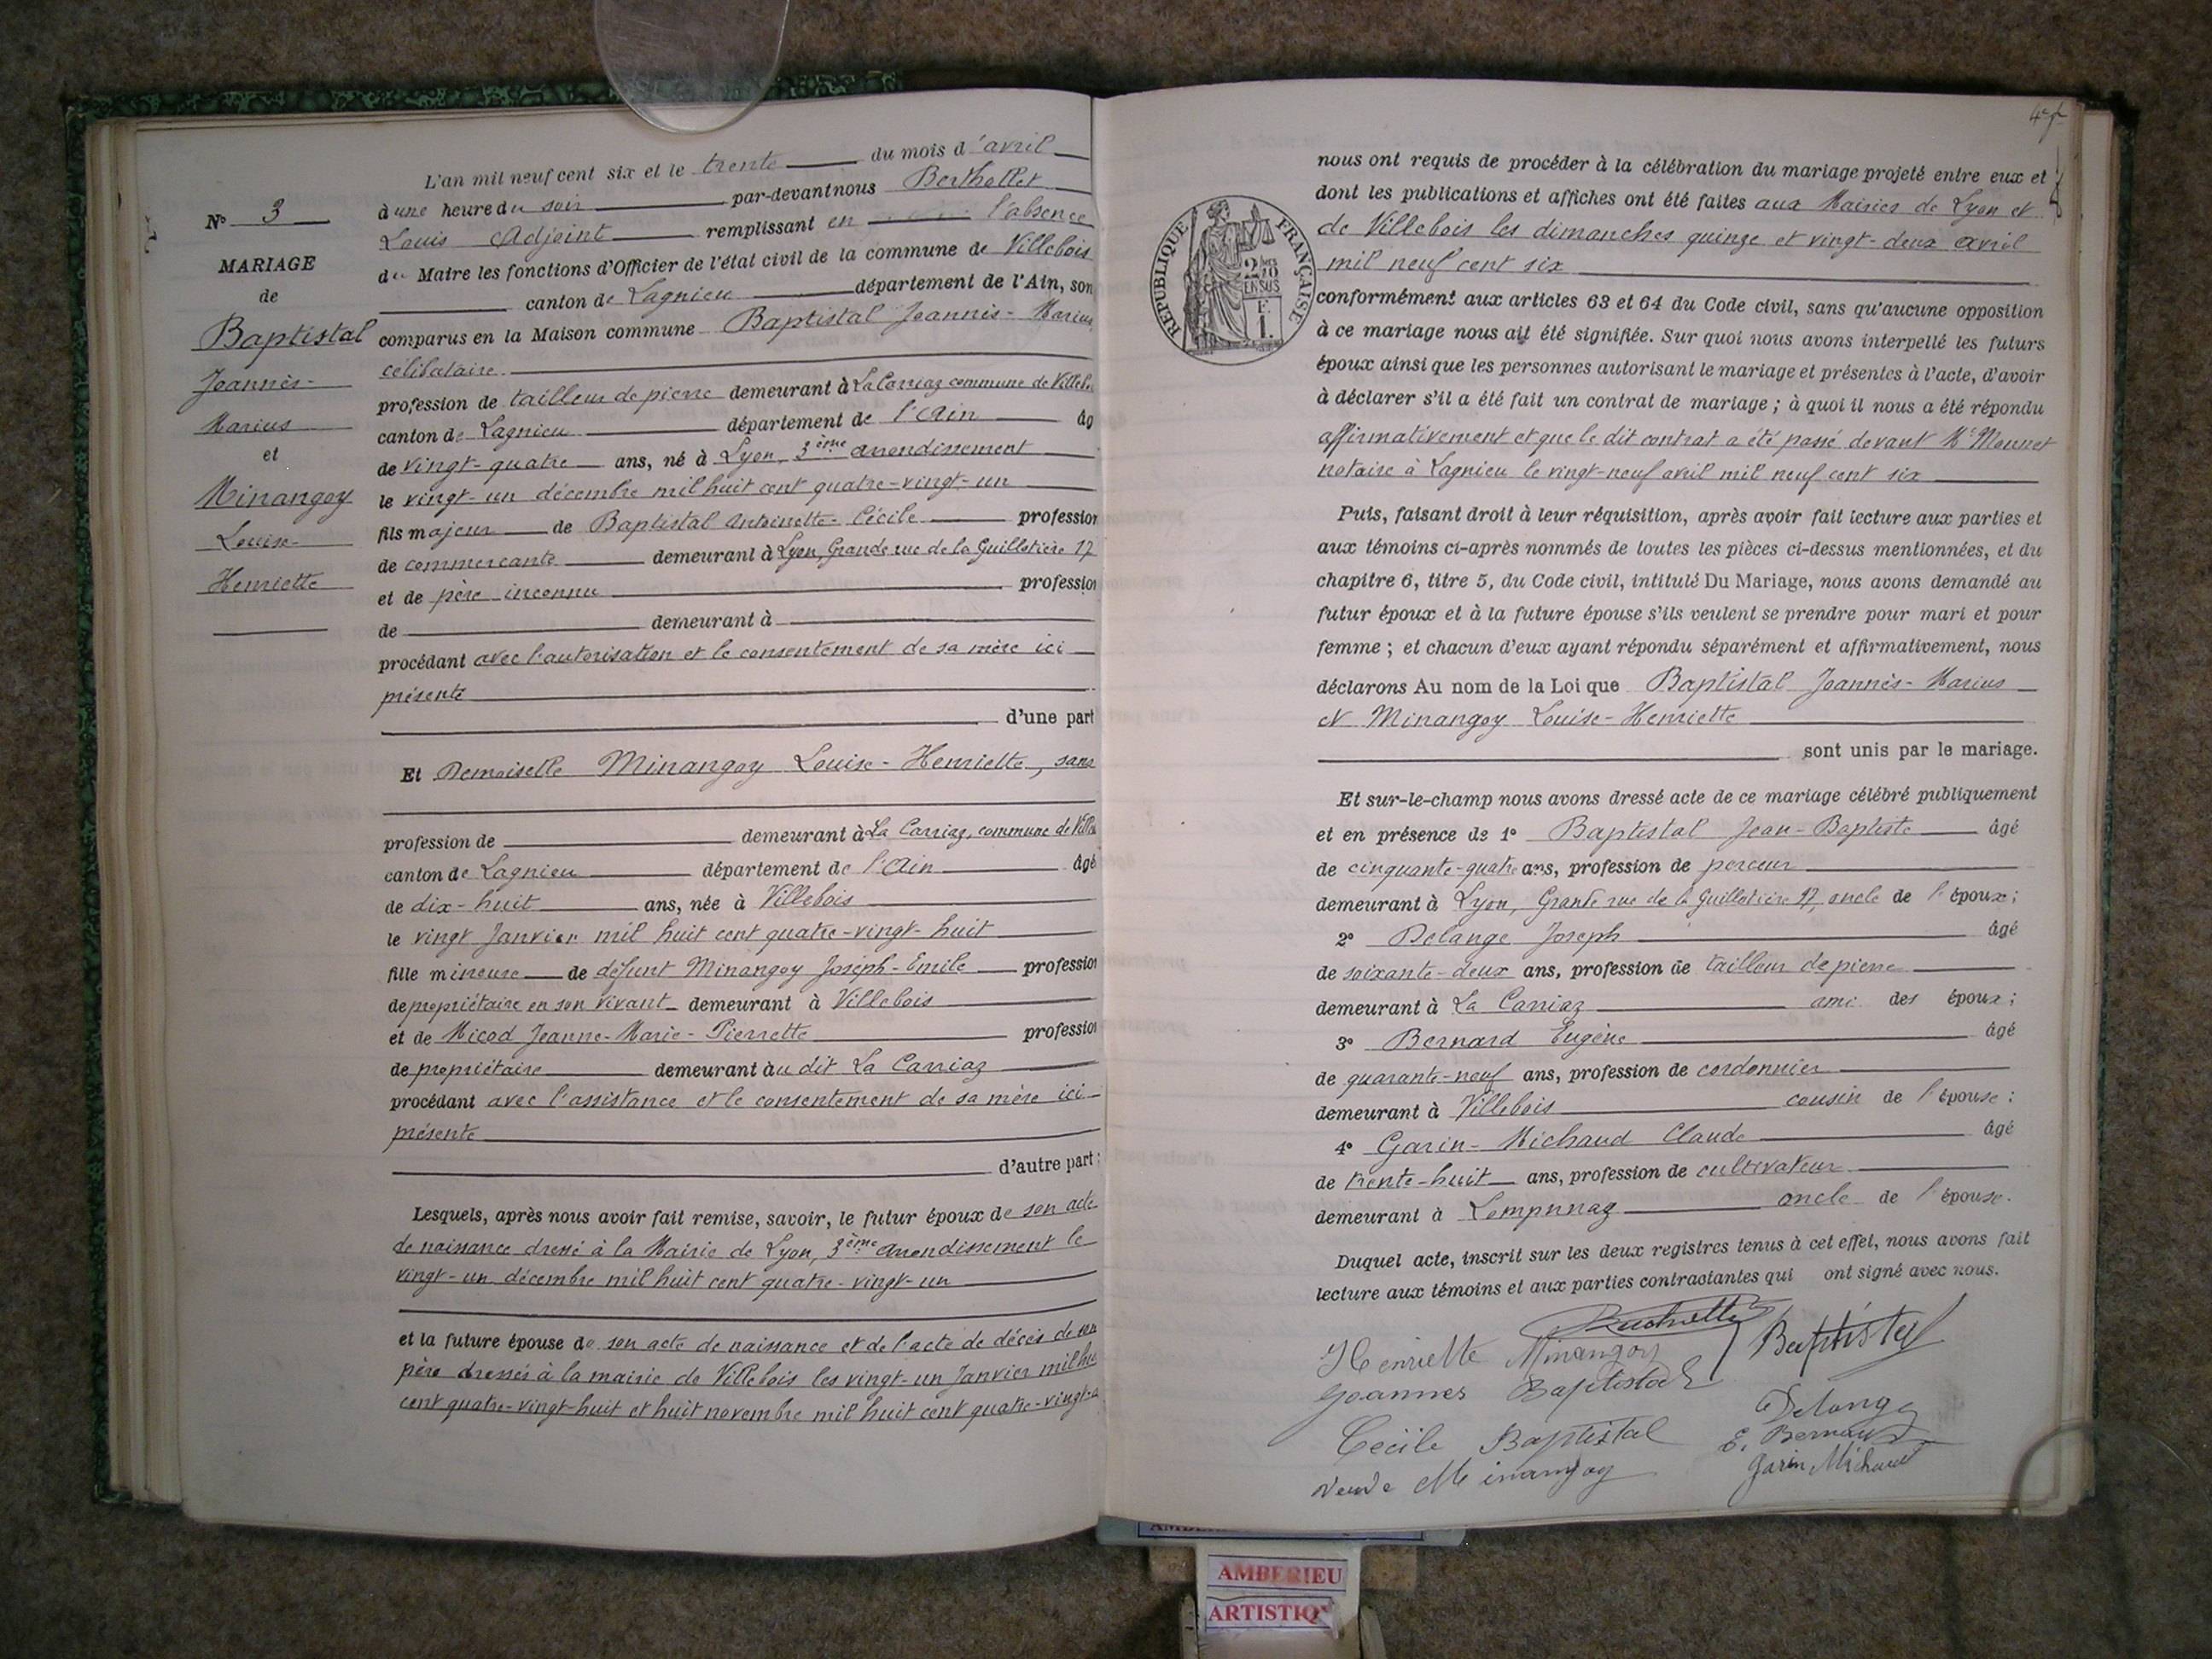 N° 3
MARIAGE
de
Baptistal
Joannès-
Marius
et
Minangoy
Louise-
Henriette
L'an mil neuf cent six et le trente du mois d'avril
à une heure du soir par-devant nous Berthollet
Louis Adjoint remplissant en l'absence
du Maire les fonctions d'Officier de l'état civil de la commune de Villebois
canton de Lagnieu département de l'Ain, son
comparus en la Maison commune Baptistal Joannès-Marius
célibataire
profession de tailleur de pierre demeurant à La Carriaz commune de Villeb
canton de Lagnieu département de l'Ain âg
de vingt-quatre ans, né à Lyon, 3ème arrondissement
le vingt-un décembre mil huit cent quatre-vingt-un
fils majeur de Baptistal Antoinette-Cécile profession
de commercante demeurant à Lyon, Grande rue de la Guillotière 17
et de père inconnu profession
de demeurant à
procédant avec l'autorisation et le consentement de sa mère ici
présente
d'une part
Et Demoiselle Minangoy Louise-Henriette, sans
profession de demeurant à La Carriaz, commune de Ville
canton de Lagnieu département de l'Ain âgé
de dix-huit ans, née à Villebois
le vingt Janvier mil huit cent quatre-vingt-huit
fille mineure de défunt Minangoy Joseph-Emile profession
de propriétaire en son vivant demeurant à Villebois
et de Micod Jeanne-Marie-Pierrette profession
de propriétaire demeurant au dit La Carriaz
procédant avec l'assistance et le consentement de sa mère ici
présente
d'autre part;
Lesquels, après nous avoir fait remise, savoir, le futur époux de son acte
de naissance dressé à la Mairie de Lyon, 3ème arrondissement le
vingt-un décembre mil huit cent quatre-vingt-un
et la future épouse de son acte de naissance et de l'acte de décès de son
père dressés à la mairie de Villebois les vingt-un Janvier mil hui
cent quatre-vingt-huit et huit novembre mil huit cent quatre-vingt-
nous ont requis de procéder à la célébration du mariage projeté entre eux et
dont les publications et affiches ont été faites aux Mairies de Lyon et
de Villebois les dimanches quinze et vingt-deux avril
mil neuf cent six
RÉPUBLIQUE FRANÇAISE
2/10
EN SUS
F.
1.
conformément aux articles 63 et 64 du Code civil, sans qu'aucune opposition
à ce mariage nous ait été signifiée. Sur quoi nous avons interpellé les futurs
époux ainsi que les personnes autorisant le mariage et présentes à l'acte, d'avoir
à déclarer s'il a été fait un contrat de mariage; à quoi il nous a été répondu
affirmativement et que le dit contrat a été passé devant Me Monnet
notaire à Lagnieu le vingt-neuf avril mil neuf cent six
Puis, faisant droit à leur réquisition, après avoir fait lecture aux parties et
aux témoins ci-après nommés de toutes les pièces ci-dessus mentionnées, et du
chapitre 6, titre 5, du Code civil, intitulé Du Mariage, nous avons demandé au
futur époux et à la future épouse s'ils veulent se prendre pour mari et pour
femme; et chacun d'eux ayant répondu séparément et affirmativement, nous
déclarons Au nom de la Loi que Baptistal Joannès-Marius
et Minangoy Louise-Henriette
sont unis par le mariage.
Et sur-le-champ nous avons dressé acte de ce mariage célébré publiquement
et en présence de 1° Baptistal Jean-Baptiste âgé
de cinquante-quatre ans, profession de perceur
demeurant à Lyon, Grande rue de la Guillotière 17, oncle de l'époux;
2° Delange Joseph âgé
de soixante-deux ans, profession de tailleur de pierre
demeurant à La Carriaz ami des époux;
3° Bernard Eugène âgé
de quarante-neuf ans, profession de cordonnier
demeurant à Villebois cousin de l'épouse;
4° Garin-Michaud Claude âgé
de trente-huit ans, profession de cultivateur
demeurant à oncle de l'épouse.
Duquel acte, inscrit sur les deux registres tenus à cet effet, nous avons fait
lecture aux témoins et aux parties contractantes qui ont signé avec nous.
Henriette Minangoy Baptistal
Joannes Baptistal
Delange
Cécile Baptistal E. Bernard
veuve Minangoy Garin Michaud
AMBERIEU
ARTISTIQ